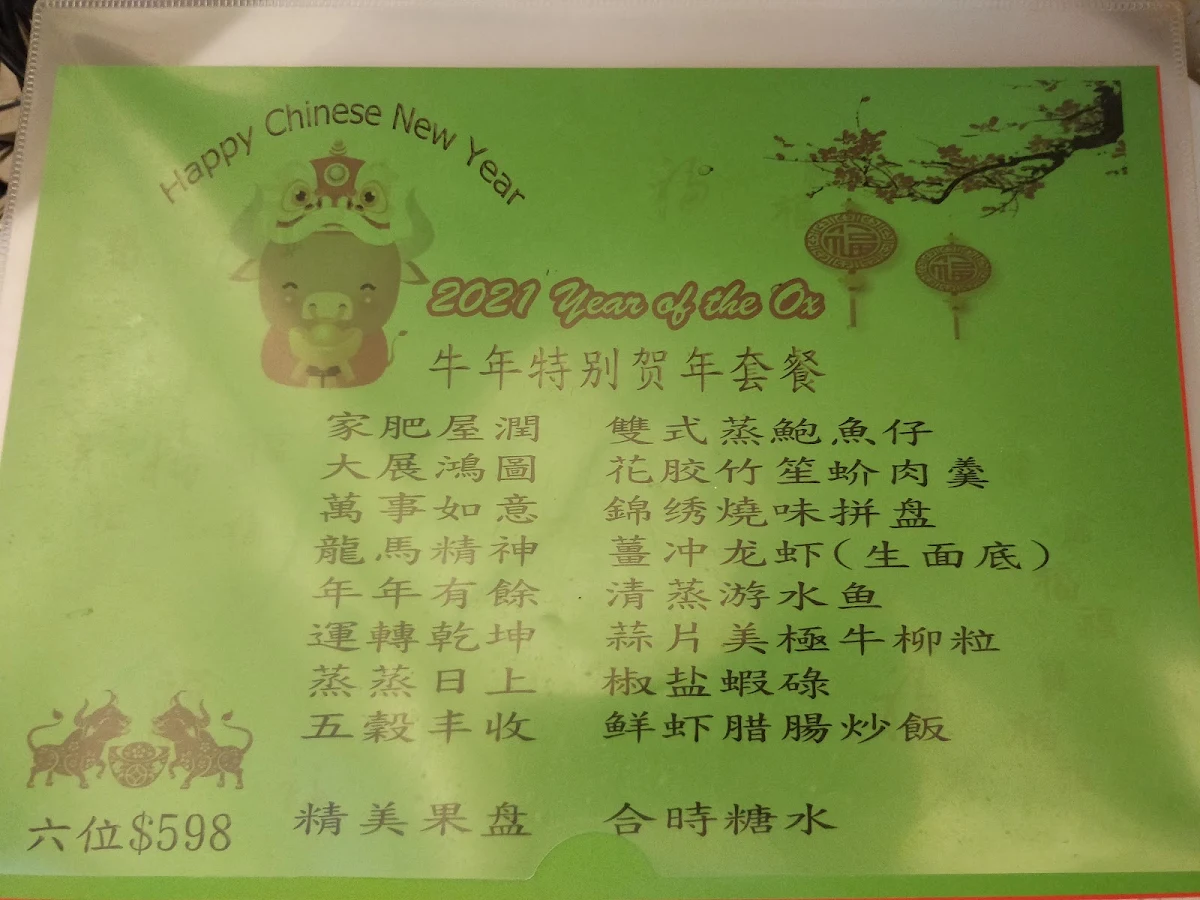 Happy Chinese New Year
福
福
2021 Year of the Ox
牛年特别贺年套餐
家肥屋潤 雙式蒸鮑魚仔
大展鴻圖 花胶竹笙蚧肉羹
萬事如意 錦绣燒味拼盘
龍馬精神 薑冲龙虾(生面底)
年年有餘 清蒸游水鱼
運轉乾坤 蒜片美極牛柳粒
蒸蒸日上 椒盐蝦碌
五穀丰收 鲜虾腊腸炒飯
精美果盘 合時糖水
六位$598